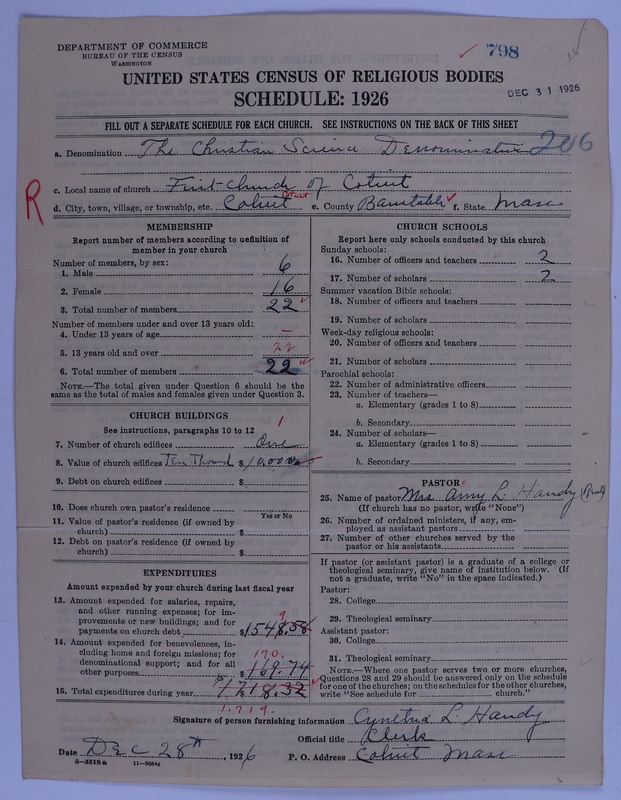 DEPARTMENT OF COMMERCE
BUREAU OF THE CENSUS
WASHINGTON
798
UNITED STATES CENSUS OF RELIGIOUS BODIES
SCHEDULE: 1926
DEC 31 1926
FILL OUT A SEPARATE SCHEDULE FOR EACH CHURCH. SEE INSTRUCTIONS ON THE BACK OF THIS SHEET
a. Denomination The Christian Science Denomination 206
c. Local name of church First Church of Cotuit
R
d. City, town, village, or township, etc. Cotuit Cotuit e. County Barnstable f. State Mass
MEMBERSHIP
Report number of members according to definition of
member in your church
Number of members, by sex:
1. Male 6
2. Female 16
3. Total number of members 22
Number of members under and over 13 years old:
4. Under 13 years of age —
5. 13 years old and over 22
6. Total number of members 22
NOTE.—The total given under Question 6 should be the
same as the total of males and females given under Question 3.
CHURCH BUILDINGS
See instructions, paragraphs 10 to 12
1
7. Number of church edifices One
8. Value of church edifices Ten Thousand $ 10,000.00
9. Debt on church edifices $
10. Does church own pastor's residence
Yes or No
11. Value of pastor's residence (if owned by
church) $
12. Debt on pastor's residence (if owned by
church) $
EXPENDITURES
Amount expended by your church during last fiscal year
13. Amount expended for salaries, repairs,
and other running expenses; for im-
provements or new buildings; and for
9
payments on church debt $1548.58
14. Amount expended for benevolences, in-
cluding home and foreign missions; for
denominational support; and for all
170.
other purposes $169.74
15. Total expenditures during year $1718.32
1,719.
CHURCH SCHOOLS
Report here only schools conducted by this church
Sunday schools:
16. Number of officers and teachers 2
17. Number of scholars 7
Summer vacation Bible schools:
18. Number of officers and teachers
19. Number of scholars
Week-day religious schools:
20. Number of officers and teachers
21. Number of scholars
Parochial schools:
22. Number of administrative officers
23. Number of teachers—
a. Elementary (grades 1 to 8)
b. Secondary
24. Number of scholars—
a. Elementary (grades 1 to 8)
b. Secondary
PASTOR
25. Name of pastor Mrs Amy L. Handy
(If church has no pastor, write "None")
26. Number of ordained ministers, if any, em-
ployed as assistant pastors
27. Number of other churches served by the
pastor or his assistants
If pastor (or assistant pastor) is a graduate of a college or
theological seminary, give name of institution below. (If
not a graduate, write "No" in the space indicated.)
Pastor:
28. College
29. Theological seminary
Assistant pastor:
30. College
31. Theological seminary
NOTE.—Where one pastor serves two or more churches,
Questions 28 and 29 should be answered only on the schedule
for one of the churches; on the schedules for the other churches,
write "See schedule for church."
Signature of person furnishing information Cynthia L. Handy
Official title Clerk
Date Dec 28th, 1926 P. O. Address Cotuit Mass
8—5518 a